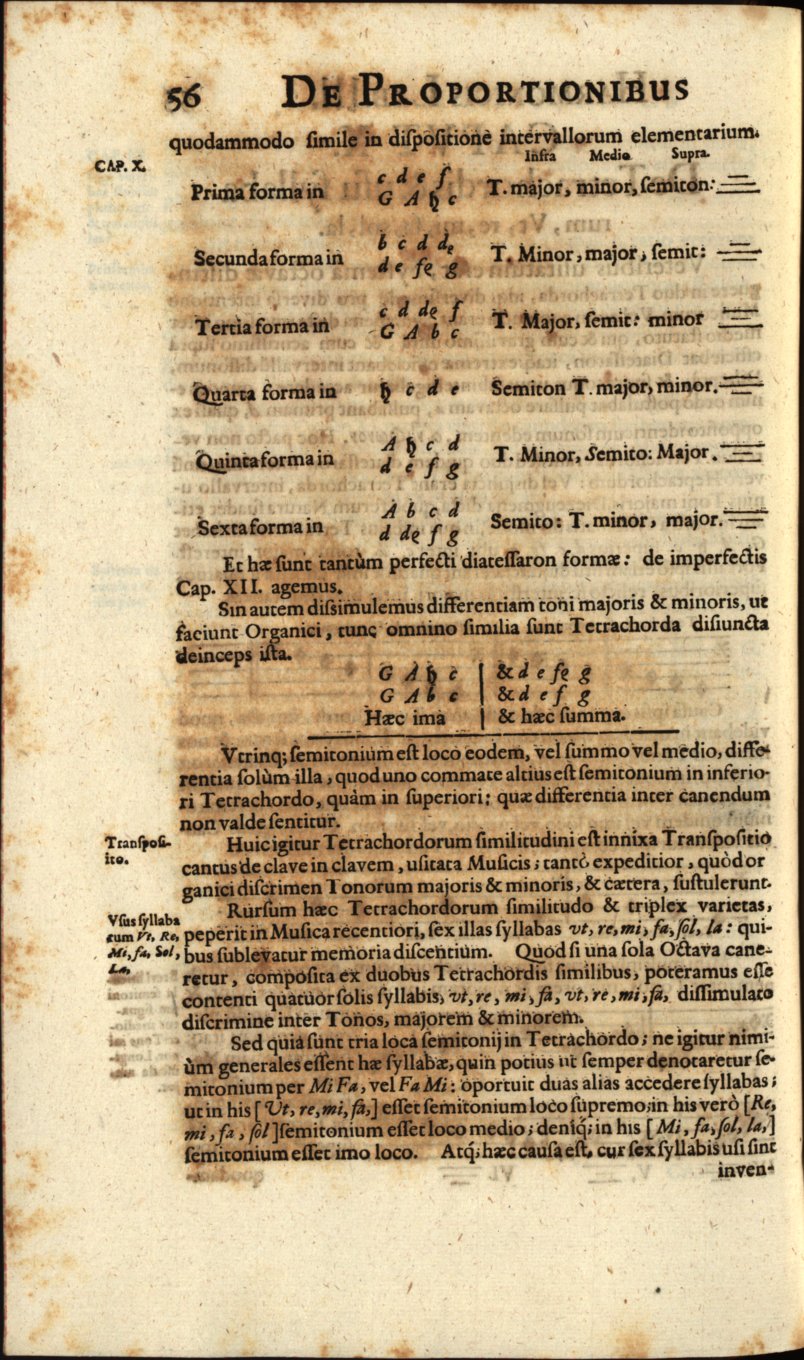 56 DE PROPORTIONIBUS
quodammodo ſimile in diſpoſitionè intervallorum elementarium.
Infra Medio Supra.
CAP. X.
Prima forma in c d e f T. major, minor, ſemiton:
G A ♮ c
Secunda forma in b c d dę T. Minor, major, ſemit:
d e fę g
Tertia forma in c d dę f T. Major, ſemit: minor
G A b c
Quarta forma in ♮ c d e Semiton T. major, minor.
Quinta forma in A ♮ c d T. Minor, Semito: Major.
d e f g
Sexta forma in A b c d Semito: T. minor, major.
d dę f g
Et hæ ſunt tantùm perfecti diateſſaron formæ: de imperfectis
Cap. XII. agemus.
Sin autem diſsimulemus differentiam toni majoris & minoris, ut
faciunt Organici, tunc omnino ſimilia ſunt Tetrachorda diſiuncta
deinceps iſta.
G A ♮ c | & d e fę g
G A b c | & d e f g
Hæc ima | & hæc ſumma.
Vtrinq; ſemitonium eſt loco eodem, vel ſummo vel medio, diffe-
rentia ſolùm illa, quod uno commate altius eſt ſemitonium in inferio-
ri Tetrachordo, quàm in ſuperiori: quæ differentia inter canendum
non valde ſentitur.
Tranſpoſi-
tio.
Huic igitur Tetrachordorum ſimilitudini eſt innixa Tranſpoſitio
cantus de clave in clavem, uſitata Muſicis; tantò expeditior, quòd or
ganici diſcrimen Tonorum majoris & minoris, & cætera, ſuſtulerunt.
Vſus ſyllaba
rum Vt, Re,
Mi, fa, Sol,
La,
Rurſum hæc Tetrachordorum ſimilitudo & triplex varietas,
peperit in Muſica recentiori, ſex illas ſyllabas vt, re, mi, fa, ſol, la: qui-
bus ſublevatur memoria diſcentium. Quod ſi una ſola Octava cane-
retur, compoſita ex duobus Tetrachordis ſimilibus, poteramus eſſe
contenti quatuor ſolis ſyllabis, vt, re, mi, fa, vt, re, mi, fa, diſſimulato
diſcrimine inter Tonos, majorem & minorem.
Sed quia ſunt tria loca ſemitonij in Tetrachordo; ne igitur nimi-
ùm generales eſſent hæ ſyllabæ, quin potius ut ſemper denotaretur ſe-
mitonium per Mi Fa, vel Fa Mi: oportuit duas alias accedere ſyllabas;
ut in his [Vt, re, mi, fa,] eſſet ſemitonium loco ſupremo; in his verò [Re,
mi, fa, ſol] ſemitonium eſſet loco medio; deniq́; in his [Mi, fa, ſol, la,]
ſemitonium eſſet imo loco. Atq́; hæc cauſa eſt, cur ſex ſyllabis uſi ſint
inven-